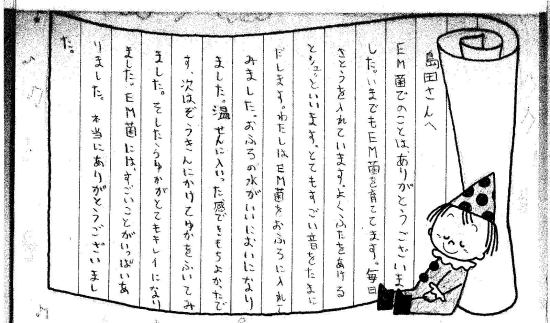 島田さんへ
EM菌でのことは、ありがとうございま
した。いまでもEM菌を育ててます。毎日
さとうを入れています。よくふたをあける
とシュッといいます。とてもすごい音をたまに
だします。わたしはEM菌をおふろに入れて
みました。おふろの水がいいにおいになり
ました。温せんに入いった感できもちよかったで
す。次はぞうきんにかけてゆかをふいてみ
ました。そしたらゆかがとてもキレイになり
ました。EM菌にはすごいことがいっぱいあ
りました。本当にありがとうございまし
た。